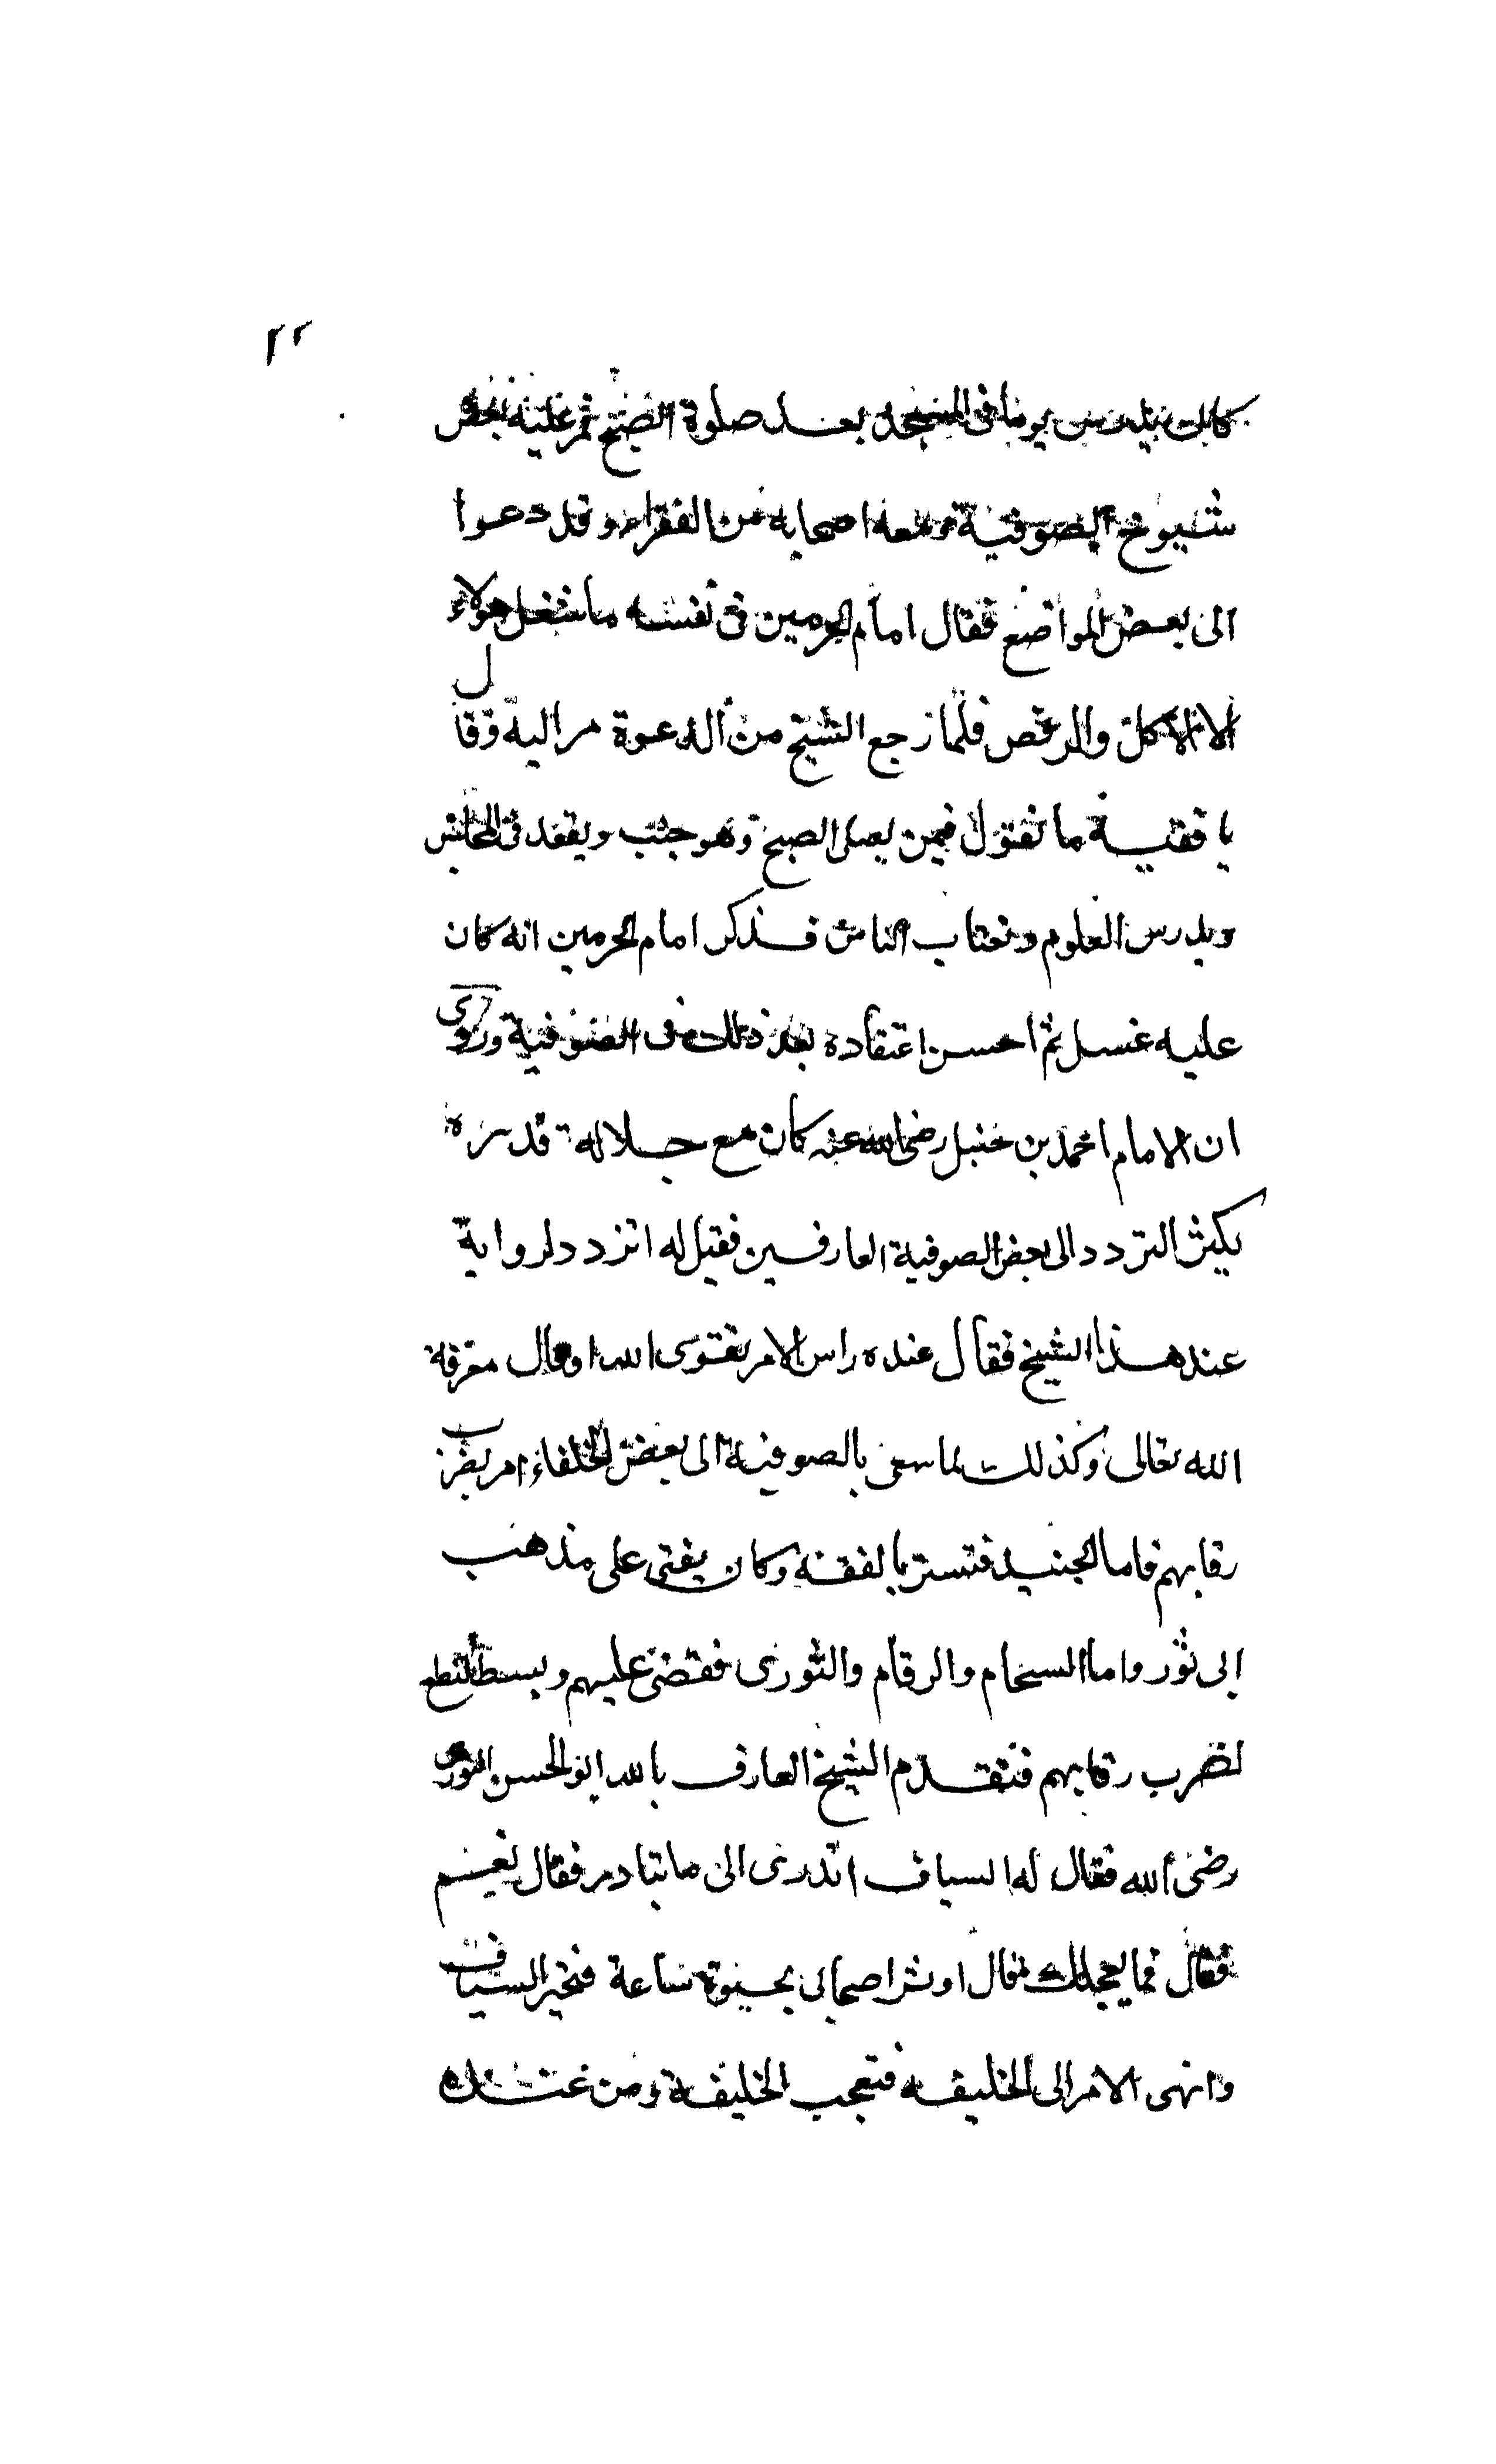 ٢٢
كان يدرس يوما فى المسجد بعد صلوة الصبح فمر عليه بعض
شيوخ الصوفية ومعه اصحابه من الفقراء وقد دعوا
الى بعض المواضع فقال امام الحرمين فى نفسه ما شغل هولاء
الا الاكل والرقص فلما رجع الشيخ من الدعوة مر اليه وقال
يا فقيه ما تقول فيمن يصلى الصبح وهو جنب ويقعد فى المجلس
ويدرس العلوم ويغتاب الناس فذكر امام الحرمين انه كان
عليه غسل ثم احسن اعتقاده بعد ذلك فى الصوفية وروى
ان الامام احمد بن حنبل رضى الله عنه كان مع جلاله قدره
يكثر التردد الى بعض الصوفية العارفين فقيل له اتردد لرواية
عند هذا الشيخ فقال عنده راس الامر تقوى الله او قال معرفة
الله تعالى وكذلك لما سعى بالصوفية الى بعض الخلفاء امر بضرب
رقابهم فاما الجنيد فتستر بالفقه وكان يفتى على مذهب
ابى ثور واما السحام والرقام والثورى فقضى عليهم وبسط النطع
لضرب رقابهم فتقدم الشيخ العارف بالله ابو الحسن النورى
رضى الله فقال له السياف اتدرى الى ما تبادر فقال نعم
فقال فما يعجلك فقال اوثر اصحابى بحيوة ساعة فتحير السياف
وانهى الامر الى الخليفه فتعجب الخليفة ومن عنده